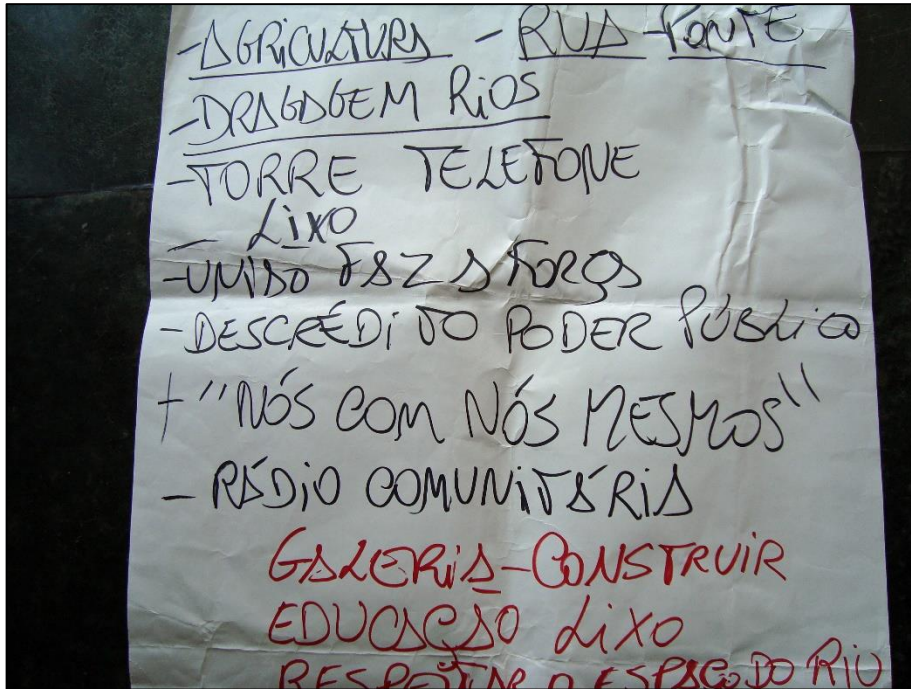 -AGRICULTURA - RUA - FONTE
-DRAGAGEM RiOS
-TORRE TELEFONE
- LiXO
-UNIÃO FAZ A FORÇA
-DESCRÉDiTO PODER PÚBLiCO
+ "NÓS COM NÓS MESMOS"
- RÁDiO COMUNiTÁRiA
GALERiA-CONSTRUiR
EDUCAÇÃO LiXO
RESPEiTAR O ESPAÇO DO RiO